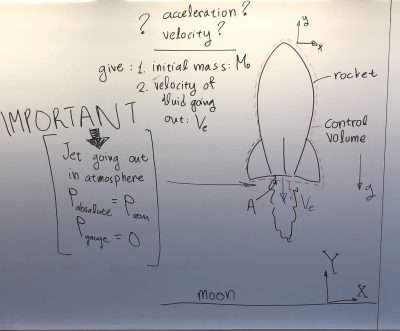 ? acceleration?
velocity?
give: 1. initial mass: M₀
2. velocity of
fluid going
out: Ve
IMPORTANT
Jet going out
in atmosphere
Pabsolute = Patm
Pgauge = 0
y
x
rocket
control
volume
g
A
Ve
Y
X
moon